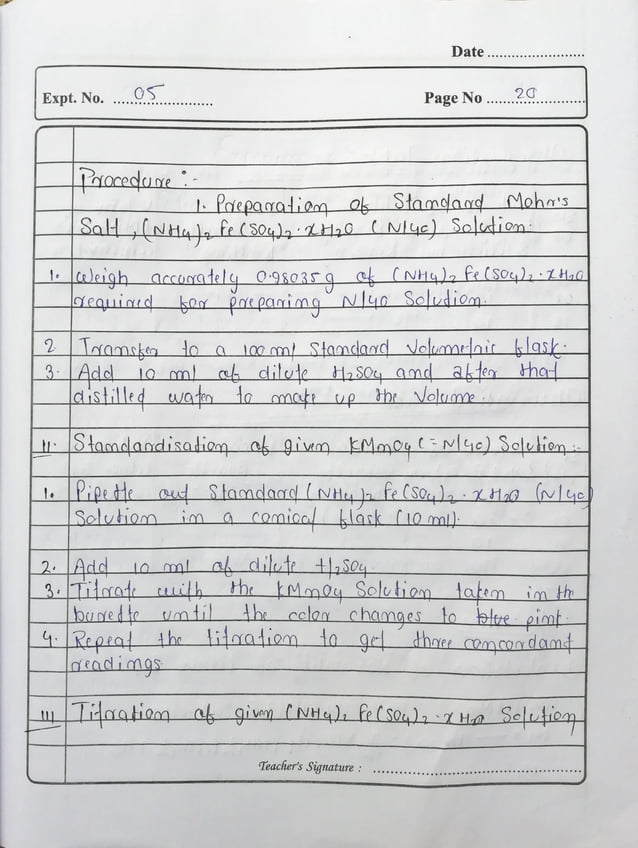 Date ............................
Expt. No. ...05.............. Page No ........20............
Procedure :-
1. Preparation of Standard Mohr's
Salt, (NH4)2 Fe(SO4)2·xH2O (N/40) Solution.
1. Weigh accurately 0.98035g of (NH4)2 Fe(SO4)2·xH2O
required for preparing N/40 Solution.
2. Transfer to a 100ml Standard Volumetric flask.
3. Add 10 ml of dilute H2SO4 and after that
distilled water to make up the Volume.
II. Standardisation of given KMnO4 (=N/40) Solution :-
1. Pipette out Standard (NH4)2 Fe(SO4)2·xH2O (N/40)
Solution in a conical flask (10 ml).
2. Add 10 ml of dilute H2SO4
3. Titrate with the KMnO4 Solution taken in the
burette until the color changes to blue pink.
4. Repeat the titration to get three concordant
readings.
III Titration of given (NH4)2 Fe(SO4)2·xH2O Solution
Teacher's Signature : ..............................................................